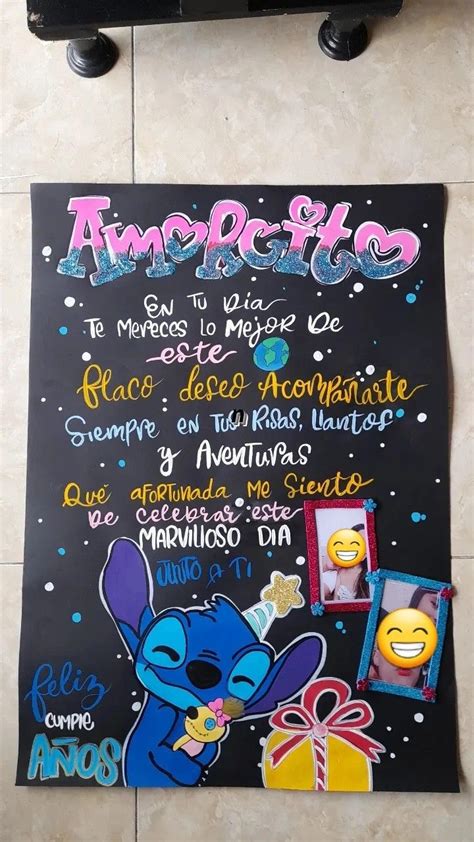 Amorcito
En Tu Día
Te Mereces lo Mejor De
este
flaco deseo Acompañarte
Siempre en Tus Risas, llantos
y Aventuras
Qué afortunada me siento
De celebrar este
MARVILLOSO DIA
JUNTO A TI
feliz
CUMPLE
AÑOS